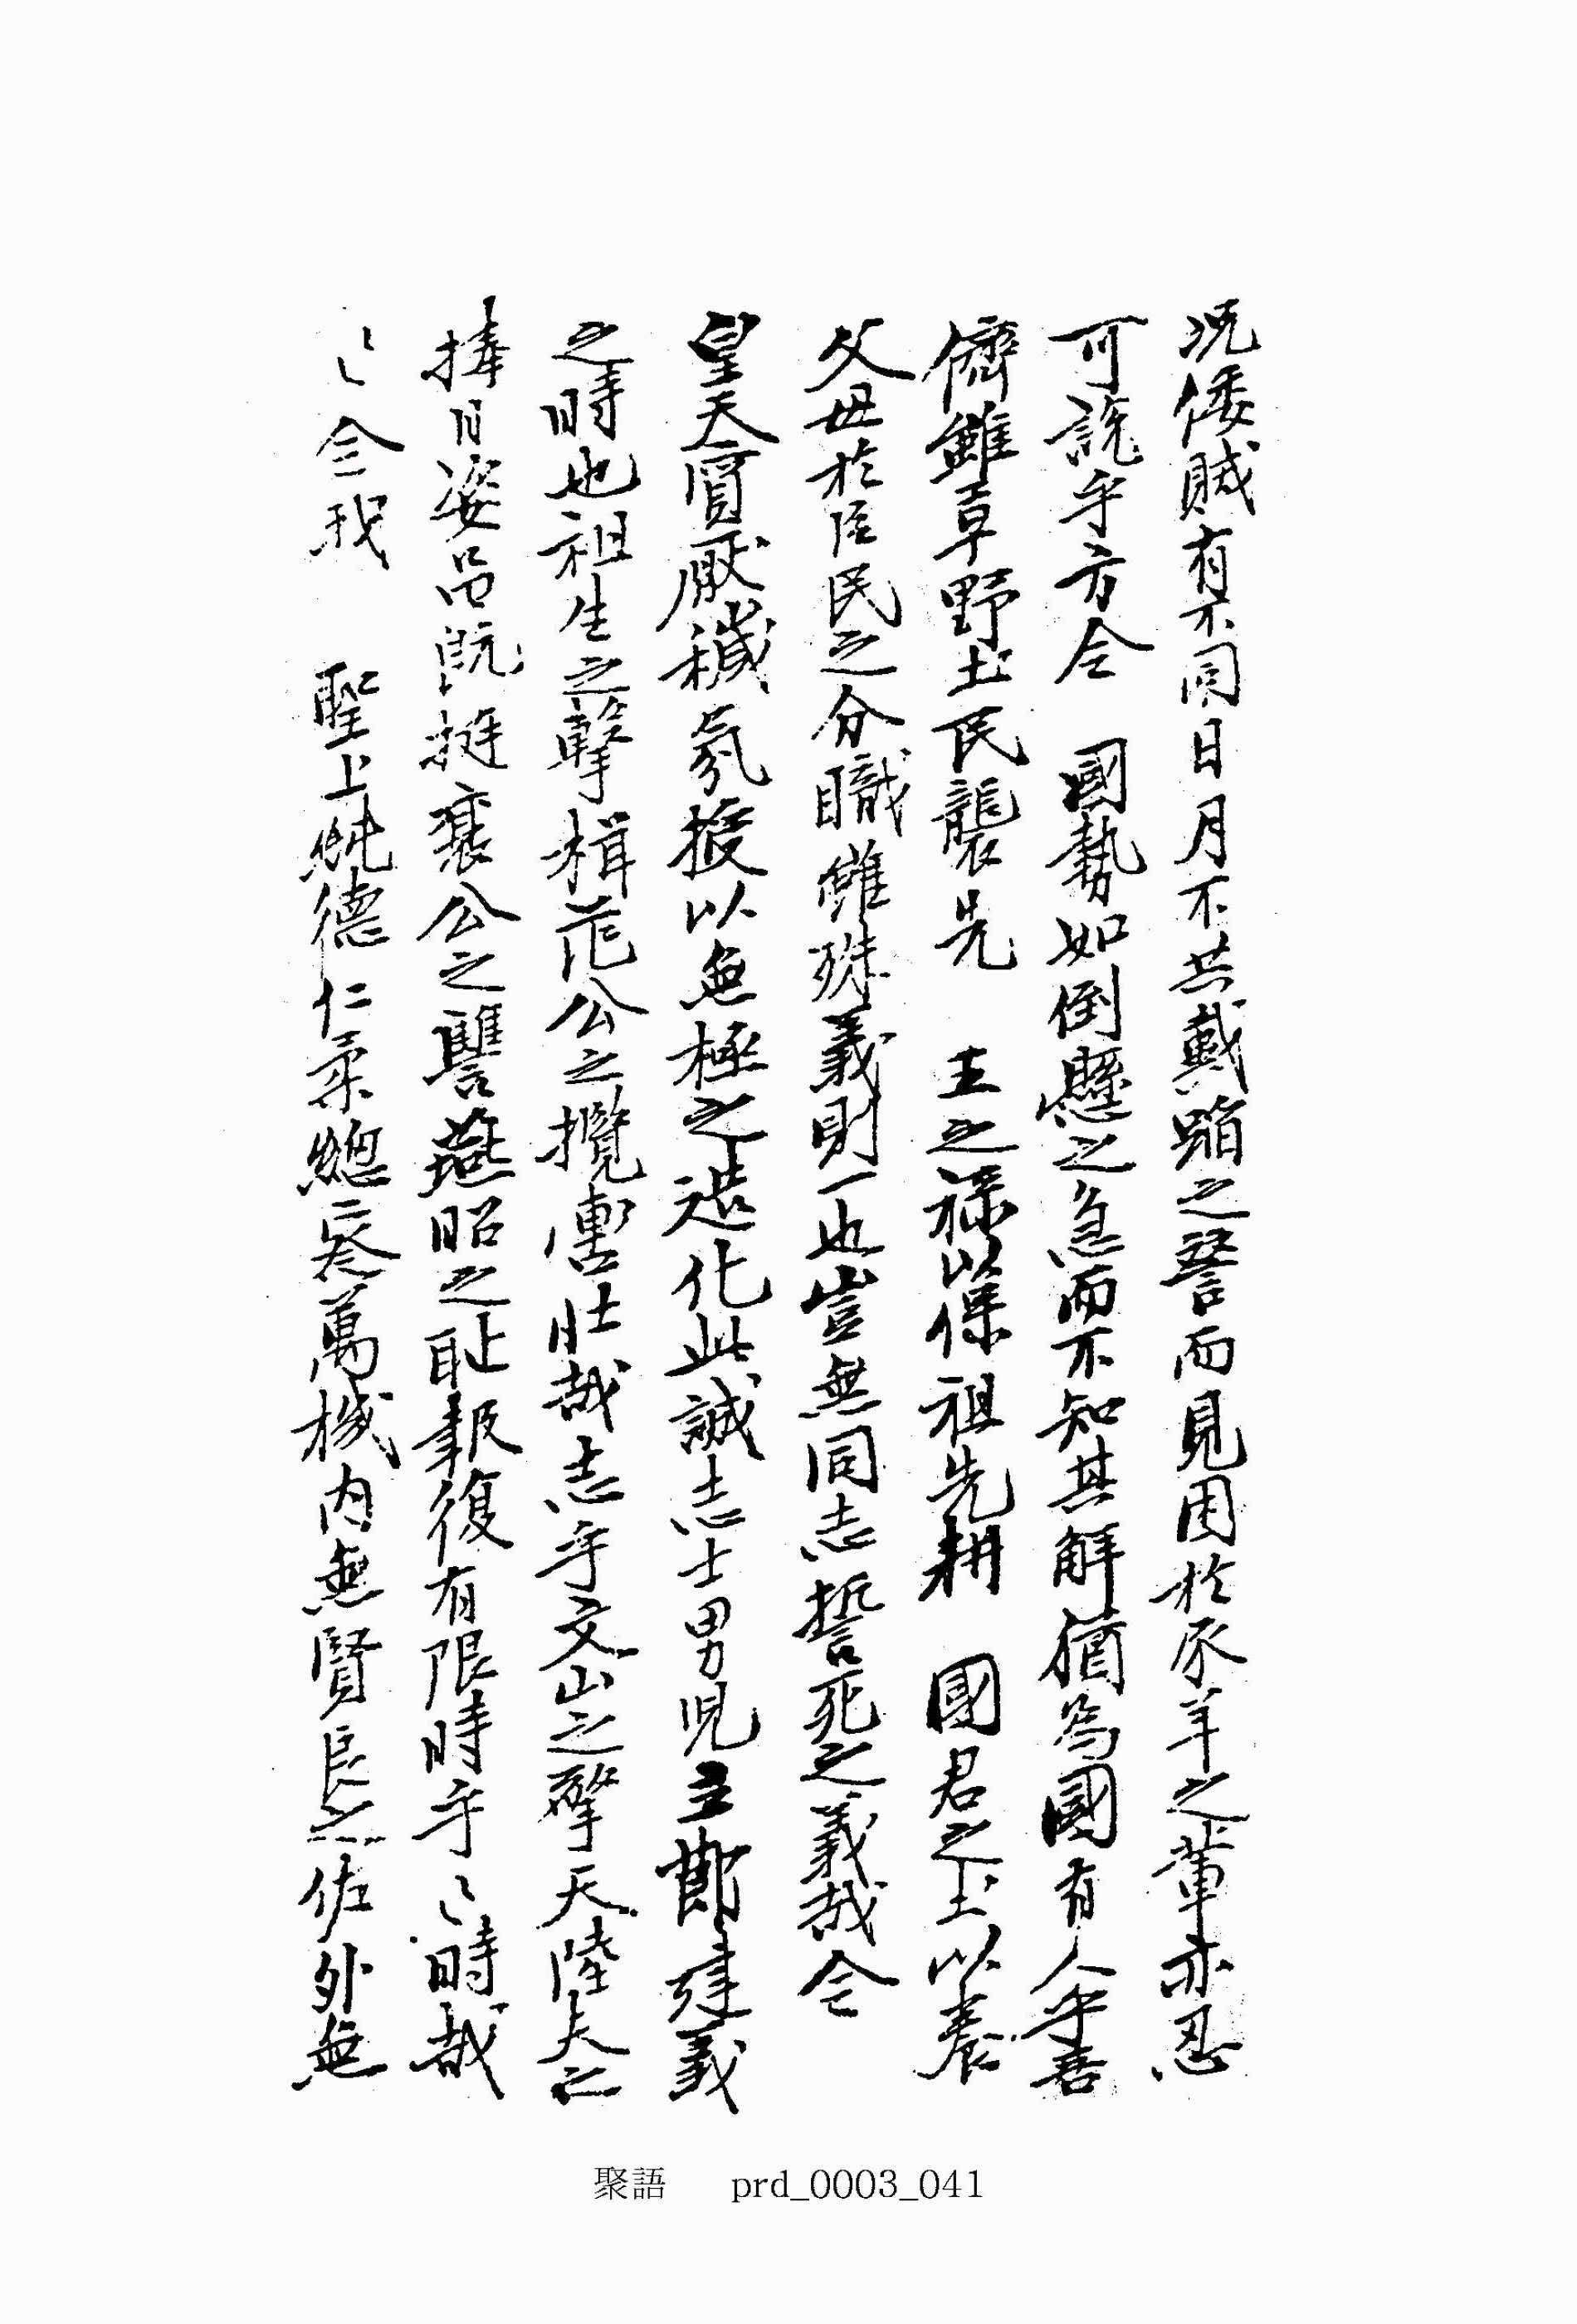 况倭賊有不同日月不共戴蹈之讐而見困於豕羊之輩亦忍
可說乎方今 國勢如倒懸之急而不知其解猶爲國有人乎吾
儕雖草野土民襲先 王之祿以保祖先耕 國君之土以養
父母於臣民之分職雖殊義則一也豈無同志誓死之義哉今
皇天實厭穢氛授以無極之造化此誠志士男児立節建義
之時也祖生之擊楫范公之攬轡壯哉志乎文山之擎天陸夫之
捧日姿 既挺襄公之讐燕昭之耻報復有限時乎〻時哉
〻今我 聖上 德仁柔總 萬機內無賢良之佐外無
聚語 prd_0003_041